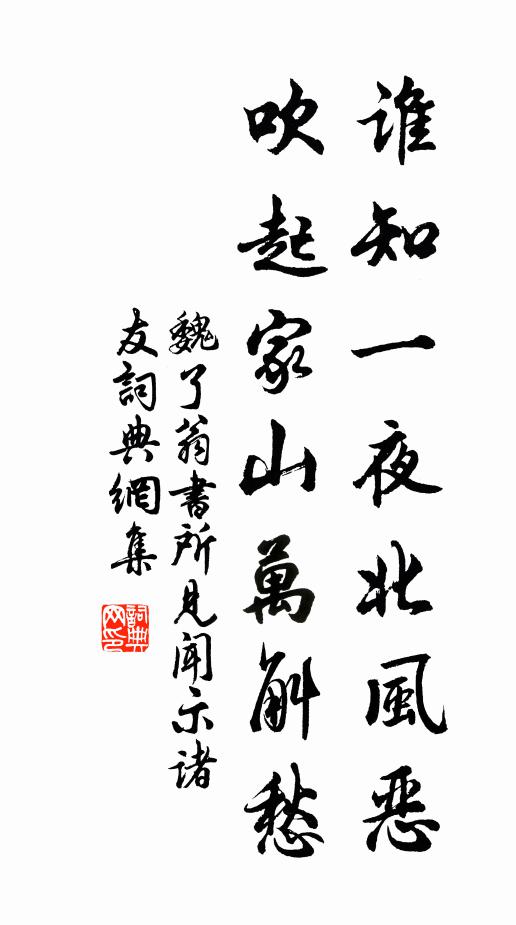 誰知一夜北風惡
吹起家山萬斛愁
魏了翁書所見聞示諸
友詞典網集
詞典
网印